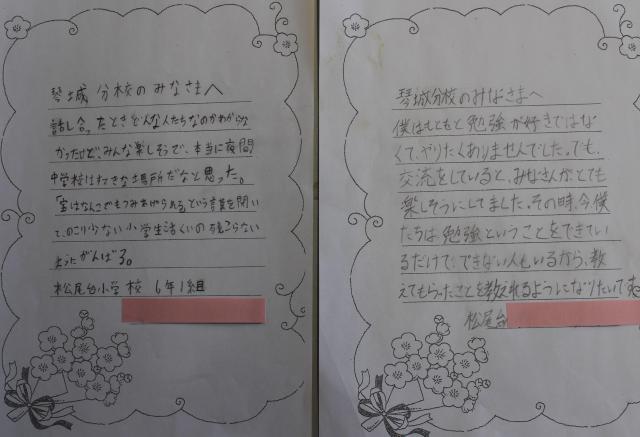 琴城分校のみなさまへ
話し合ったときどんな人たちなのかわからな
かったけど、みんな楽しそうで、本当に夜間
中学校はすてきな場所だなと思った。
「宝はなんこでもつみあげられる」という言葉を聞い
て、のこり少ない小学生活くいの残こらない
ようにがんばる。
松尾台小学校 6年1組
琴城分校のみなさまへ
僕はもともと勉強が好きではな
くて、やりたくありませんでした。でも、
交流をしていると、みなさんがとても
楽しそうにしてました。その時、今僕
たちは勉強ということをできてい
るだけで、できない人もいるから、教
えてもらったことを教えれるようになりたいです
松尾台